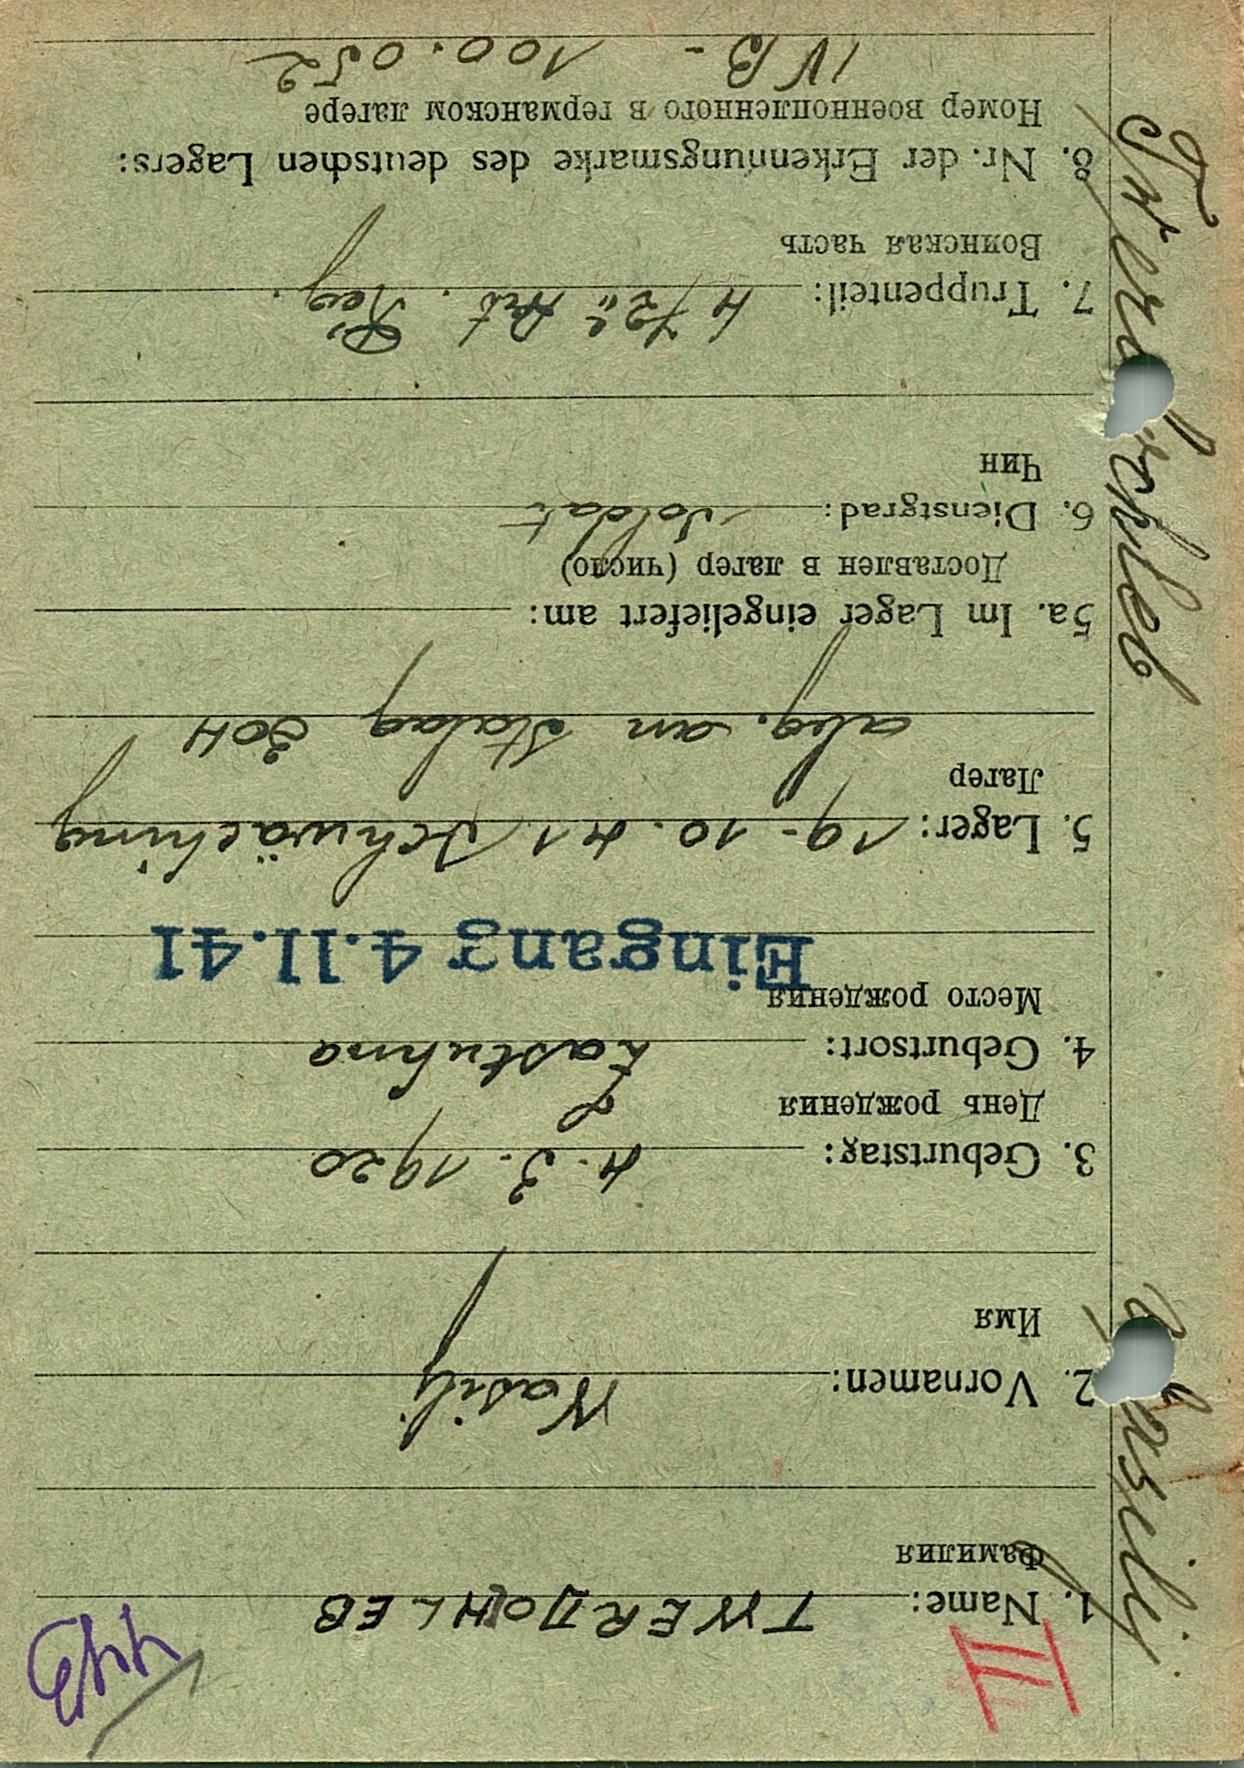 II
1. Name: TWERDOHLEB
Фамилия
2. Vornamen: Wasilij
Имя
3. Geburtstag: 4. 3. 1920
День рождения
4. Geburtsort:
Место рождения
Eingang 4.11.41
5. Lager: 19. 10. 41
Лагер
abg. an Stalag 304
5a. Im Lager eingeliefert am:
Доставлен в лагер (число)
6. Dienstgrad: Soldat
Чин
7. Truppenteil: Art. Reg.
Воинская часть
8. Nr. der Erkennungsmarke des deutschen Lagers:
Номер военнопленного в германском лагере
IV B - 100.052